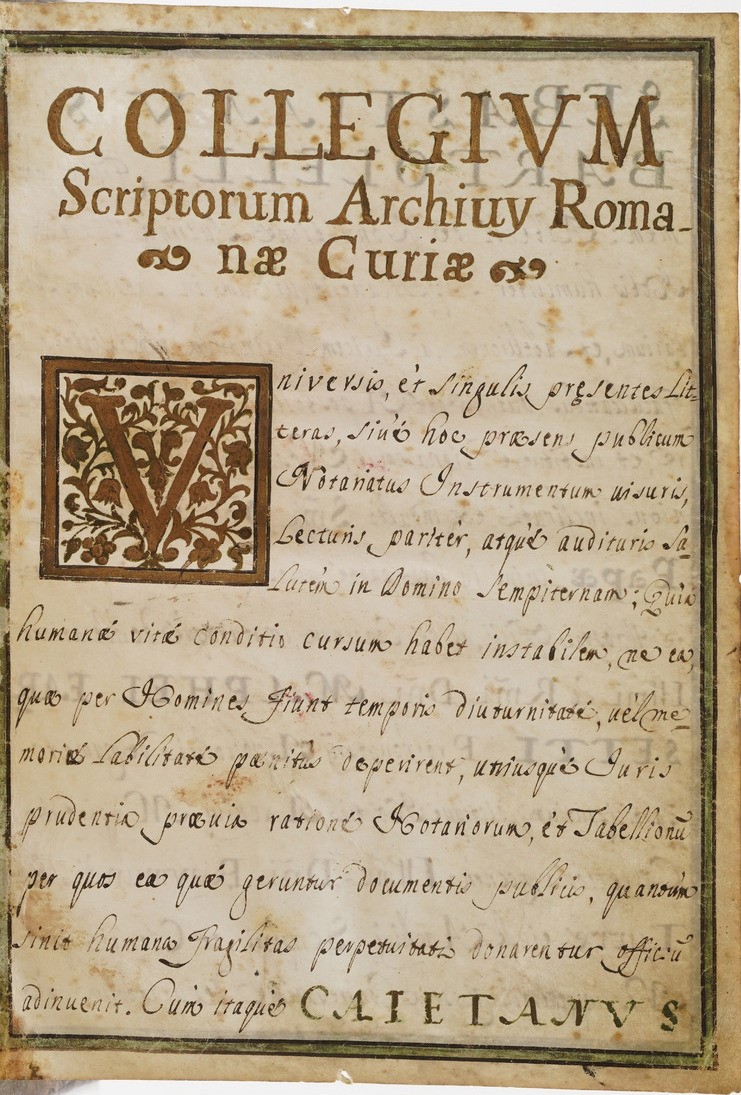 COLLEGIVM
Scriptorum Archiuy Roma-
næ Curiæ
Vniversis, et singulis pręsentes Lit-
teras, sive hoc præsens publicum
Notariatus Instrumentum uisuris,
Lecturis pariter, atque audituris Sa-
lutem in Domino Sempiternam; Quia
humanæ vitæ conditio cursum habet instabilem, ne ea,
quæ per Homines fiunt temporis diuturnitate, vel me-
moriæ Labilitate pænitus deperirent, utriusque Iuris
prudentia prævia ratione Notariorum, et Tabellionū
per quos ea quæ geruntur documentis publicis, quantum
sinit humana fragilitas perpetuitati donarentur officiū
adinvenit. Cum itaque CAIETANVS